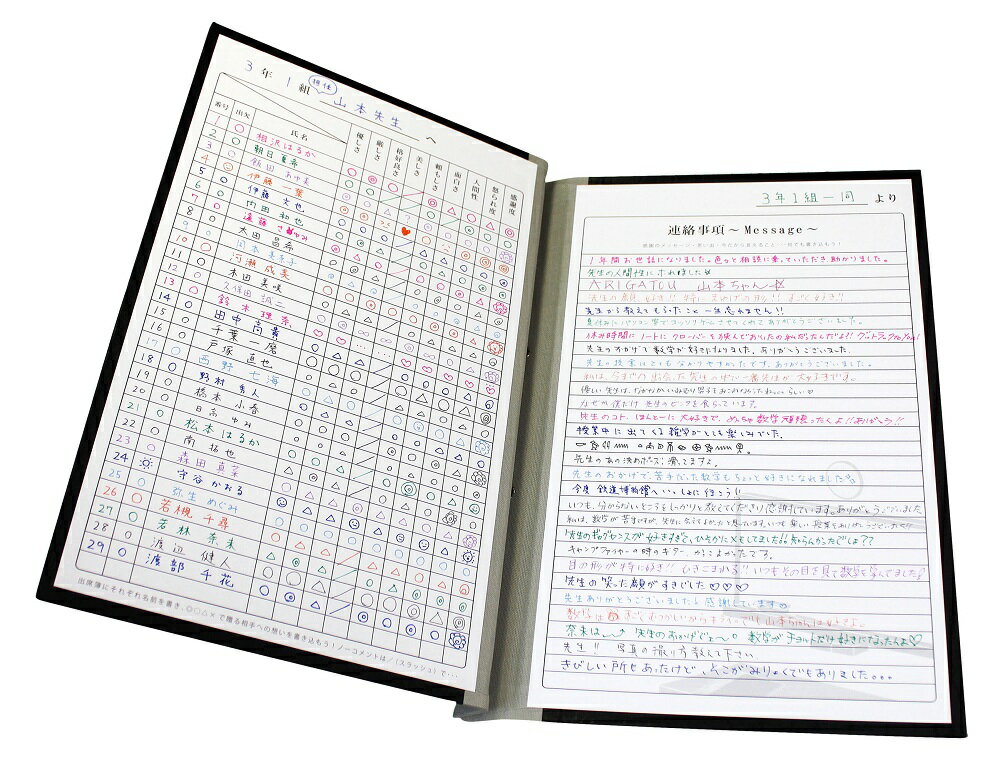 3年1組 担任 山本先生 へ
番号 出欠 氏名 優しさ 厳しさ 格好良さ 美しさ 頼もしさ 面白さ 人間性 怒られ度 感謝度
1 相沢はるか
2 朝日夏希
3 飯田 あゆま
4 伊藤 一葉
5 伊藤 文也
6 内田 和也
7 遠藤
8 太田 昌希
9 岡本
10 河瀬 成美
11 本田 美咲
12 久保田 誠二
13 鈴木 理系
14 田中 尚貴
15 千葉 磨
16 戸塚 直也
17 西野 七海
18 野村 隼人
19 橋本 小春
20 日高 ゆみ
21 松本 はるか
22 南 拓也
23 森田 真菜
24 守谷 かおる
25 弥生 めぐみ
26 若槻 千尋
27 若林 奈未
28 渡辺 健人
29 渡部 千花
出席簿にそれぞれ名前を書き、◎○△×で贈る相手への想いを書き込もう！ノーコメントは/(スラッシュ)で…
3年1組一同 より
連絡事項～Message～
感謝のメッセージ・思い出・今だから言えること…何でも書き込もう！
1年間お世話になりました。色々と相談に乗っていただき、助かりました。
先生の人間性にホれました
ARIGATOU 山本ちゃん☆
先生の顔 好き!! 特に まゆげの形!! すごく好き!!
先生から教えてもらったこと一生忘れません!!
休み時間にノートにクローバーを挟んで
先生のおかげで数学が好きになりました。ありがとうございました。
先生の授業はとても ありがとうございます。
私は、今までに出会った先生の中で一番先生が大好きです。
優しい先生は、なかなか
なぜか僕だけ先生の
先生のコト、ほんとーに大好きで、めちゃ数学頑張ったくよ!!ありがとう!!
授業中に出てくる雑学がとても楽しみでした。
先生のあの決めポーズ 憧れてますよ。
先生のおかげで、苦手だった数学もちょっと好きになれました
今度 鉄道博物館へいっしょに行こう!!
いつも、分からないところをしっかりと教えてくださり感謝しています。ありがとうございました
私は、数学が苦手ですが、先生に
先生のギャグセンスが好きすぎて、ひそかにメモしてました!!知らんかったでしょ??
キャンプファイヤーの時のギター、かっこよかったです。
目の形が特に好き!! ひきこまれる!! いつもその目を見て数学を学んでました
先生の笑った顔がすきでした♡♡♡
先生ありがとうございました! 感謝しています
奈未は 先生のおかげでじょ～ 数学がチョットだけ好きになったんよ♡
先生!! 写真の撮り方教えて下さい
きびしい所もあったけど、そこがみりょくでもありました。。。